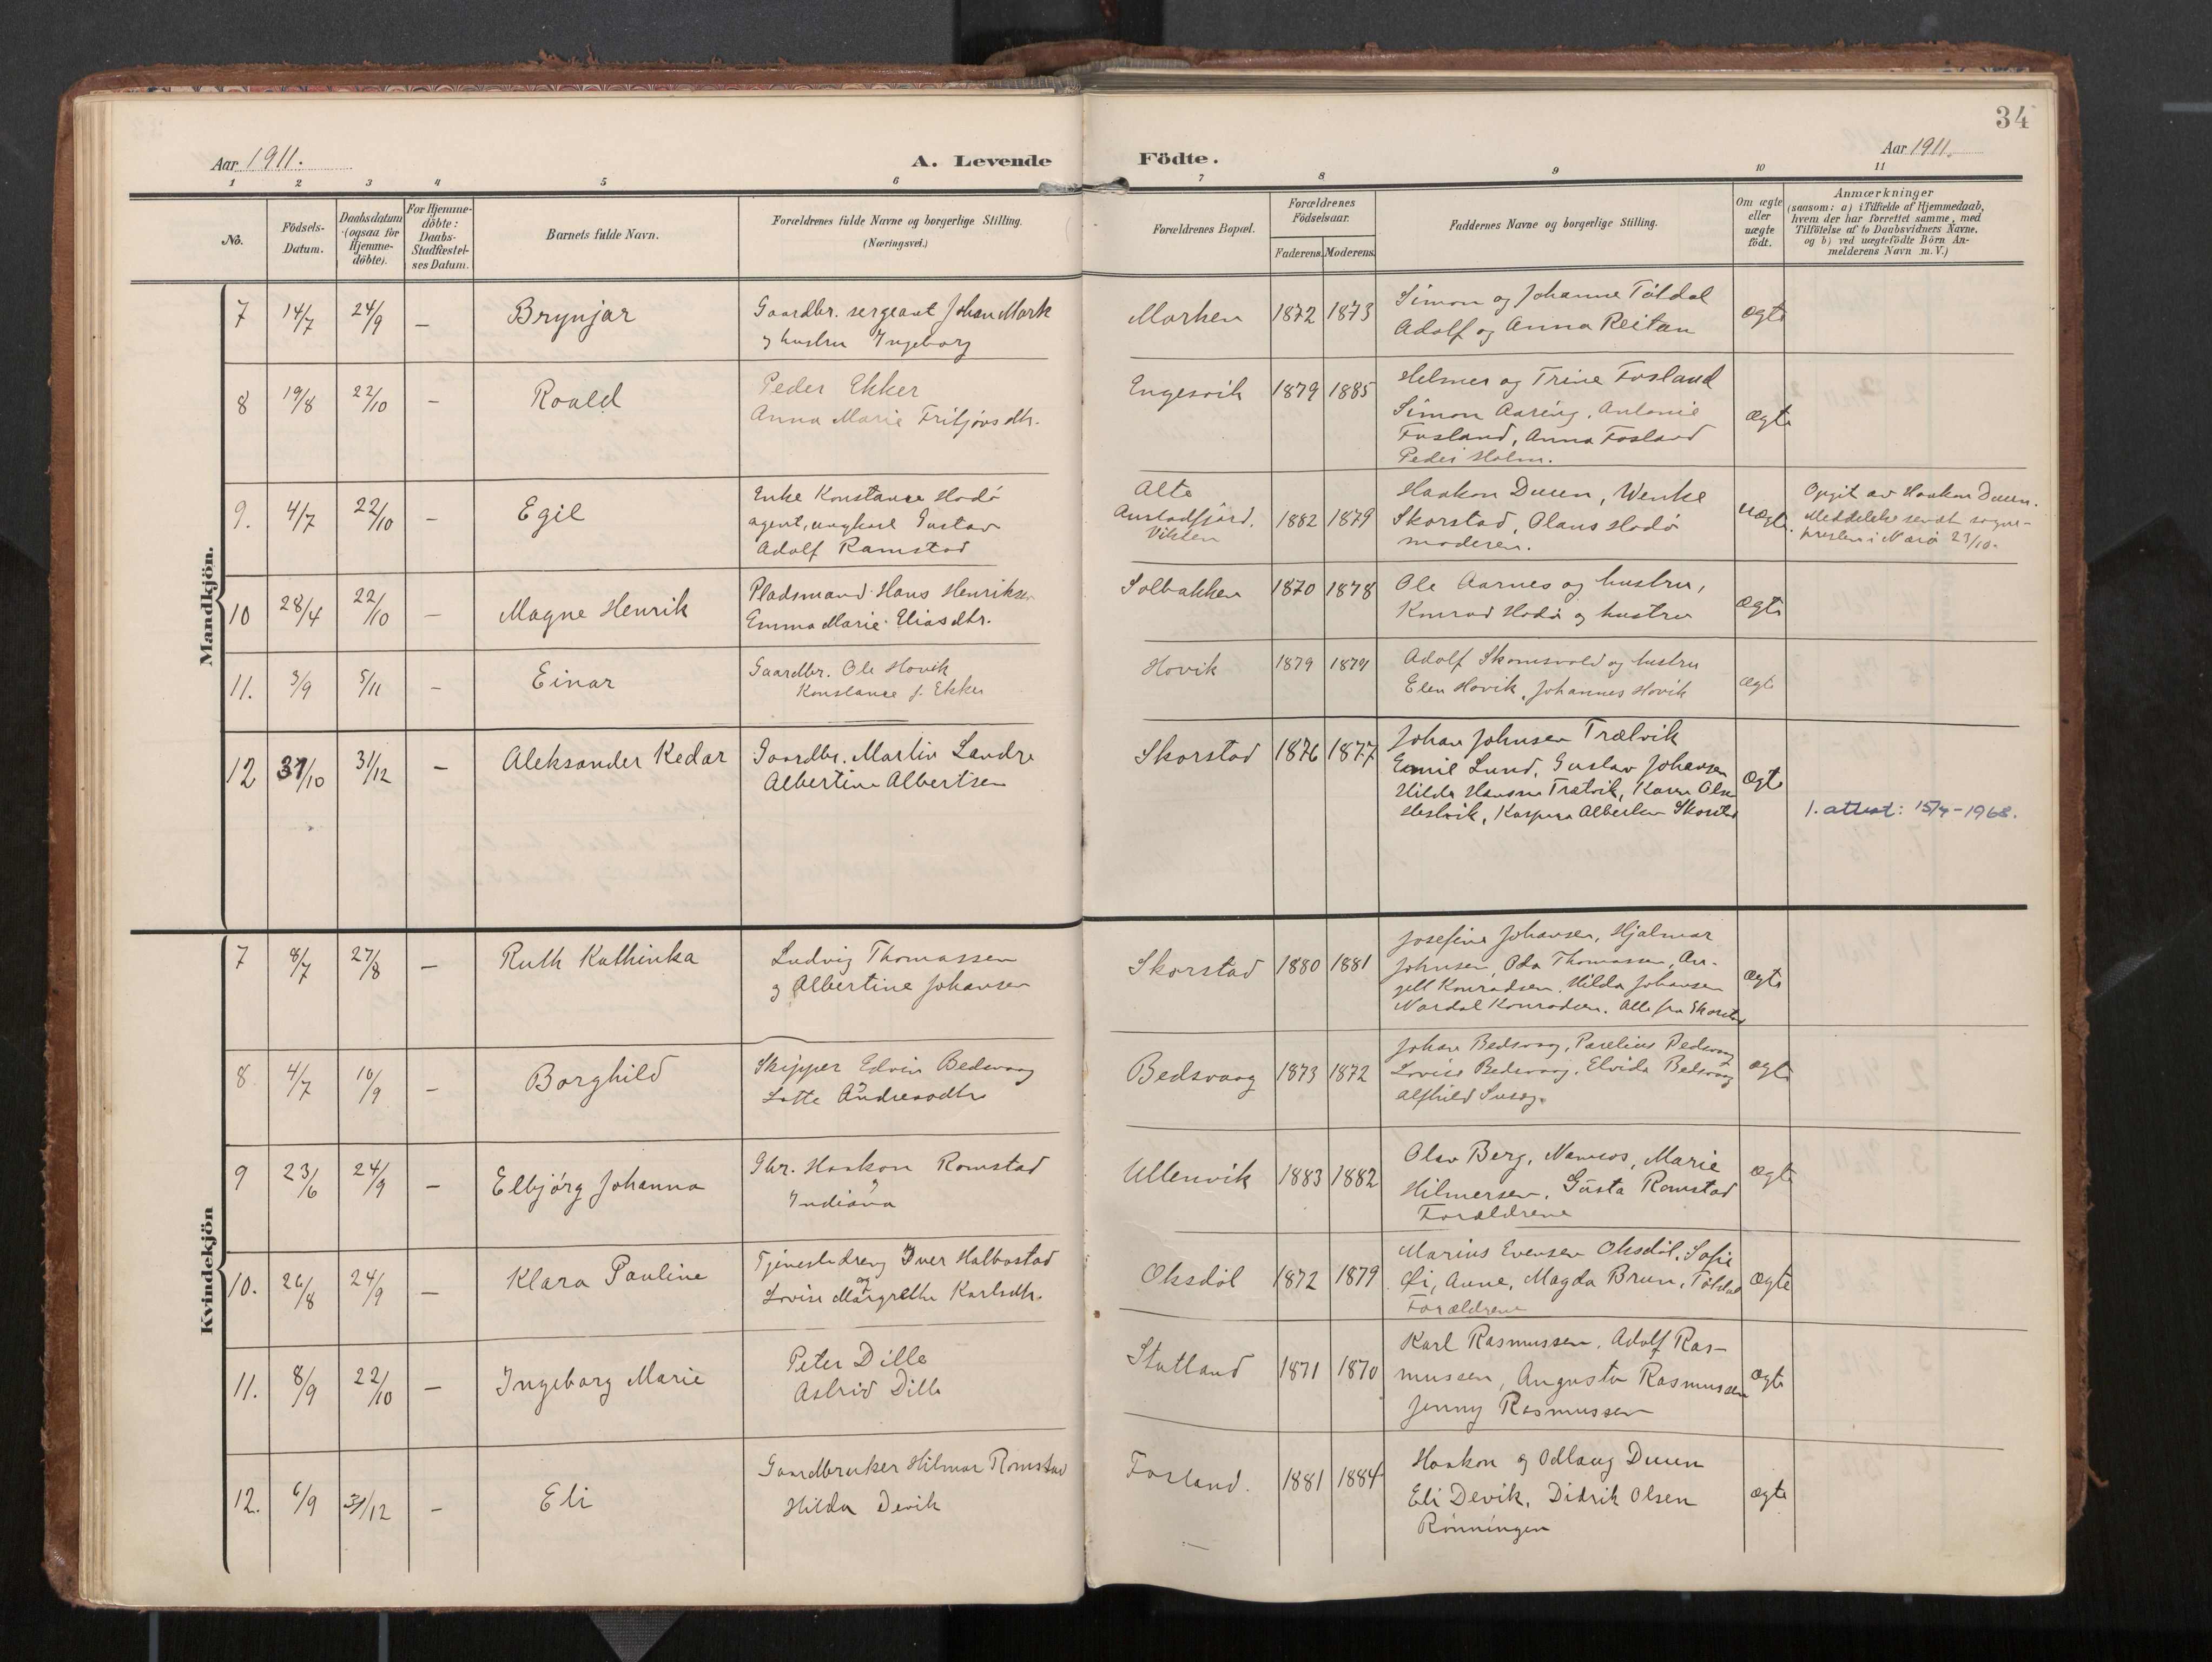 34
Aar 1911.
A. Levende
Födte.
Aar 1911.
1 2 3 4 5 6 7 8 9 10 11
No.
Födsels-
Datum.
Daabsdatum
(ogsaa for
Hjemme-
döbte).
For Hjemme-
döbte:
Daabs-
Stadfæstel-
ses Datum.
Barnets fulde Navn.
Forældrenes fulde Navne og borgerlige Stilling.
(Næringsvei.)
Forældrenes Bopæl.
Forældrenes
Födselsaar.
Faderens. Moderens.
Faddernes Navne og borgerlige Stilling.
Om ægte
eller
uægte
födt.
Anmærkninger
(saasom: a) i Tilfælde af Hjemmedaab,
hvem der har forrettet samme, med
Tilföielse af to Daabsvidners Navne.
og b) ved uægtefödte Börn An-
melderens Navn m.V.)
Mandkjön.
7 14/7 24/9 – Brynjar
Gaardbr. sergeant Johan Mork
og hustru Ingeborg
Morken 1872 1873
Simon og Johanne Töldal
Adolf og Anna Reitan
ægte
8 19/8 22/10 – Roald
Peder Ekker
Anna Marie Fritjovsdtr.
Engesvik 1879 1885
Helmer og Trine Fosland
Simon Aaring, Antonie
Fosland, Anna Fosland
Peder Holm.
ægte
9. 4/7 22/10 – Egil
Enke Konstance Hodö
agent, ungkarl Gustav
Adolf Ramstad
Alte
Austadfjord.
Vikten
1882 1879
Haakon Duun, Wenke
Skorstad, Olaus Hodö
moderen.
uægte.
Opgit av Haakon Duun.
Meddelelse sendt sogne-
presten i Nærö 23/10.
10 28/4 22/10 – Magne Henrik
Pladsmand Hans Henriksen
Emma Marie Eliasdtr.
Solbakken 1870 1878
Ole Aarnes og hustru,
Konrad Hodö og hustru
ægte
11. 3/9 5/11 – Einar
Gaardbr. Ole Hovik
Konstance f. Ekker
Hovik 1879 1879
Adolf Skomsvold og hustru
Elen Hovik, Johannes Hovik
ægte
12 31/10 31/12 – Aleksander Kedar
Gaardbr. Martin Landre
Albertine Albertsen
Skorstad 1876 1877
Johan Johnsen Trælvik
Emil Lund, Gustav Johansen
Hilda Hansen Trælvik, Karen Olsen
Heslvik, Kaspara Albertsen Skorstad
ægte
1. attest: 15/4-1968.
Kvindekjön
7 8/7 27/8 – Ruth Kathinka
Ludvig Thomassen
og Albertine Johansen
Skorstad 1880 1881
Josefine Johansen, Hjalmar
Johnsen, Oda Thomassen, An-
gell Konradsen, Hilda Johansen
Nordal Konradsen. Alle fra Skorstad
ægte
8 4/7 10/9 – Borghild
Skipper Edvin Bedsvaag
Lotte Andreasdtr
Bedsvaag 1873 1872
Johan Bedsvaag, Parelius Bedsvaag
Lovise Bedsvaag, Elvida Bedsvaag
Alfhild
ægte
9 23/6 24/9 – Elbjörg Johanna
Gbr. Haakon Romstad
og
Indiana
Ullenvik 1883 1882
Olav Berg, Namsos, Marie
Hilmersen, Gusta Romstad
Forældrene
ægte
10. 26/8 24/9 – Klara Pauline
Tjenestedreng Iver Halbostad
og
Lovise Margrethe Karlsdtr.
Oksdöl 1872 1879
Marius Evensen Oksdöl, Sofie
Öi, Anne, Magda Brun, Töldal
Forældrene
ægte
11. 8/9 22/10 – Ingeborg Marie
Peter Dille
Astrid Dille
Statland 1871 1870
Karl Rasmussen, Adolf Ras-
mussen, Augusta Rasmussen
Jenny Rasmussen
ægte
12. 6/9 31/12 – Eli
Gaardbruker Hilmar Romstad
Hilda Devik
Forland. 1881 1884
Haakon og Odlaug Duun
Eli Devik, Didrik Olsen
Rönningen
ægte